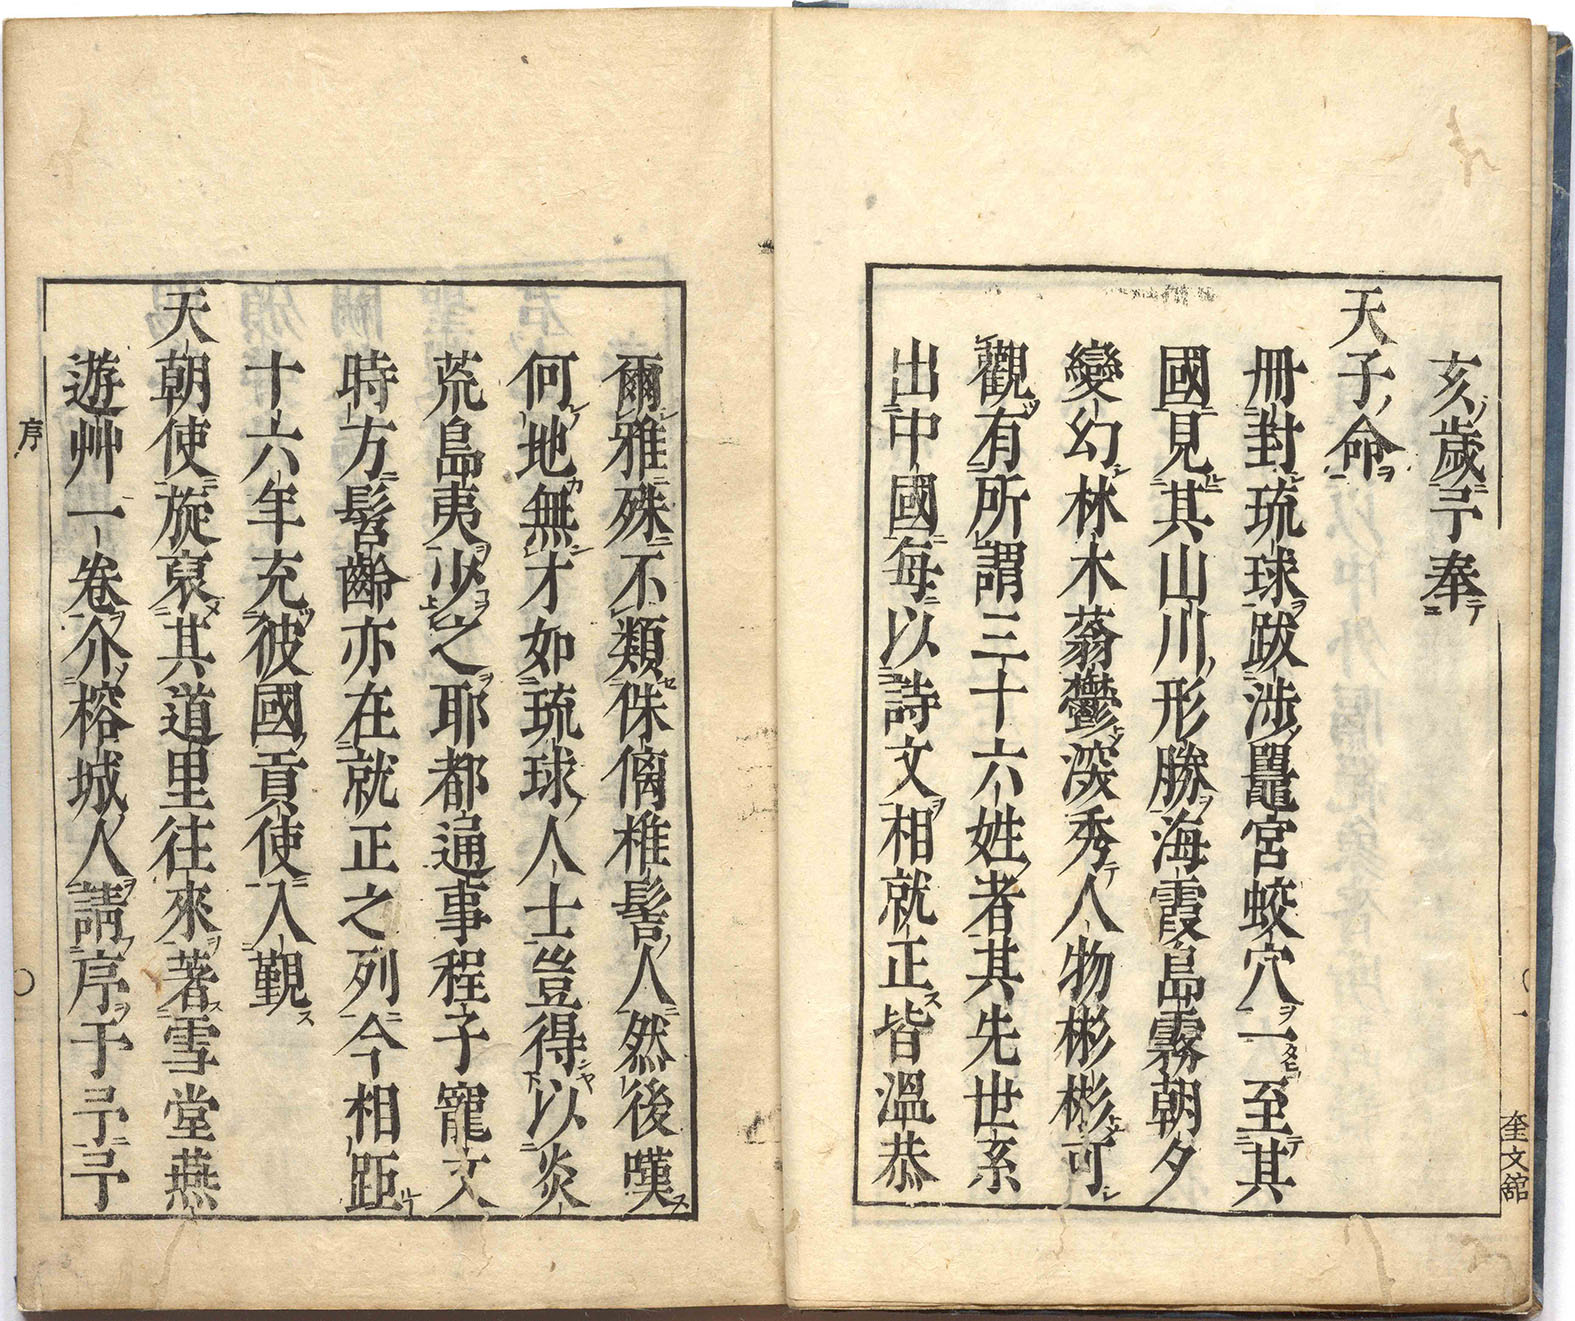 亥歲予奉
天子命
冊對琉球跋涉鼉宮蛟穴一至其
國見其山川形勝海霞島霧朝夕
變幻林木蓊鬱深秀人物彬彬可
觀有所謂三十六姓者其先世系
出中國每以詩文相就正皆溫恭
奎文舘
爾雅殊不類侏㒧椎髻人然後嘆
何地無才如琉球人士豈得以炎
荒島夷少之耶都通事程子寵文
時方髫齡亦在就正之列今相距
十六年充彼國貢使入覲
天朝使旋裒其道里往來著雪堂燕
遊艸一卷介榕城人請序于予予
序